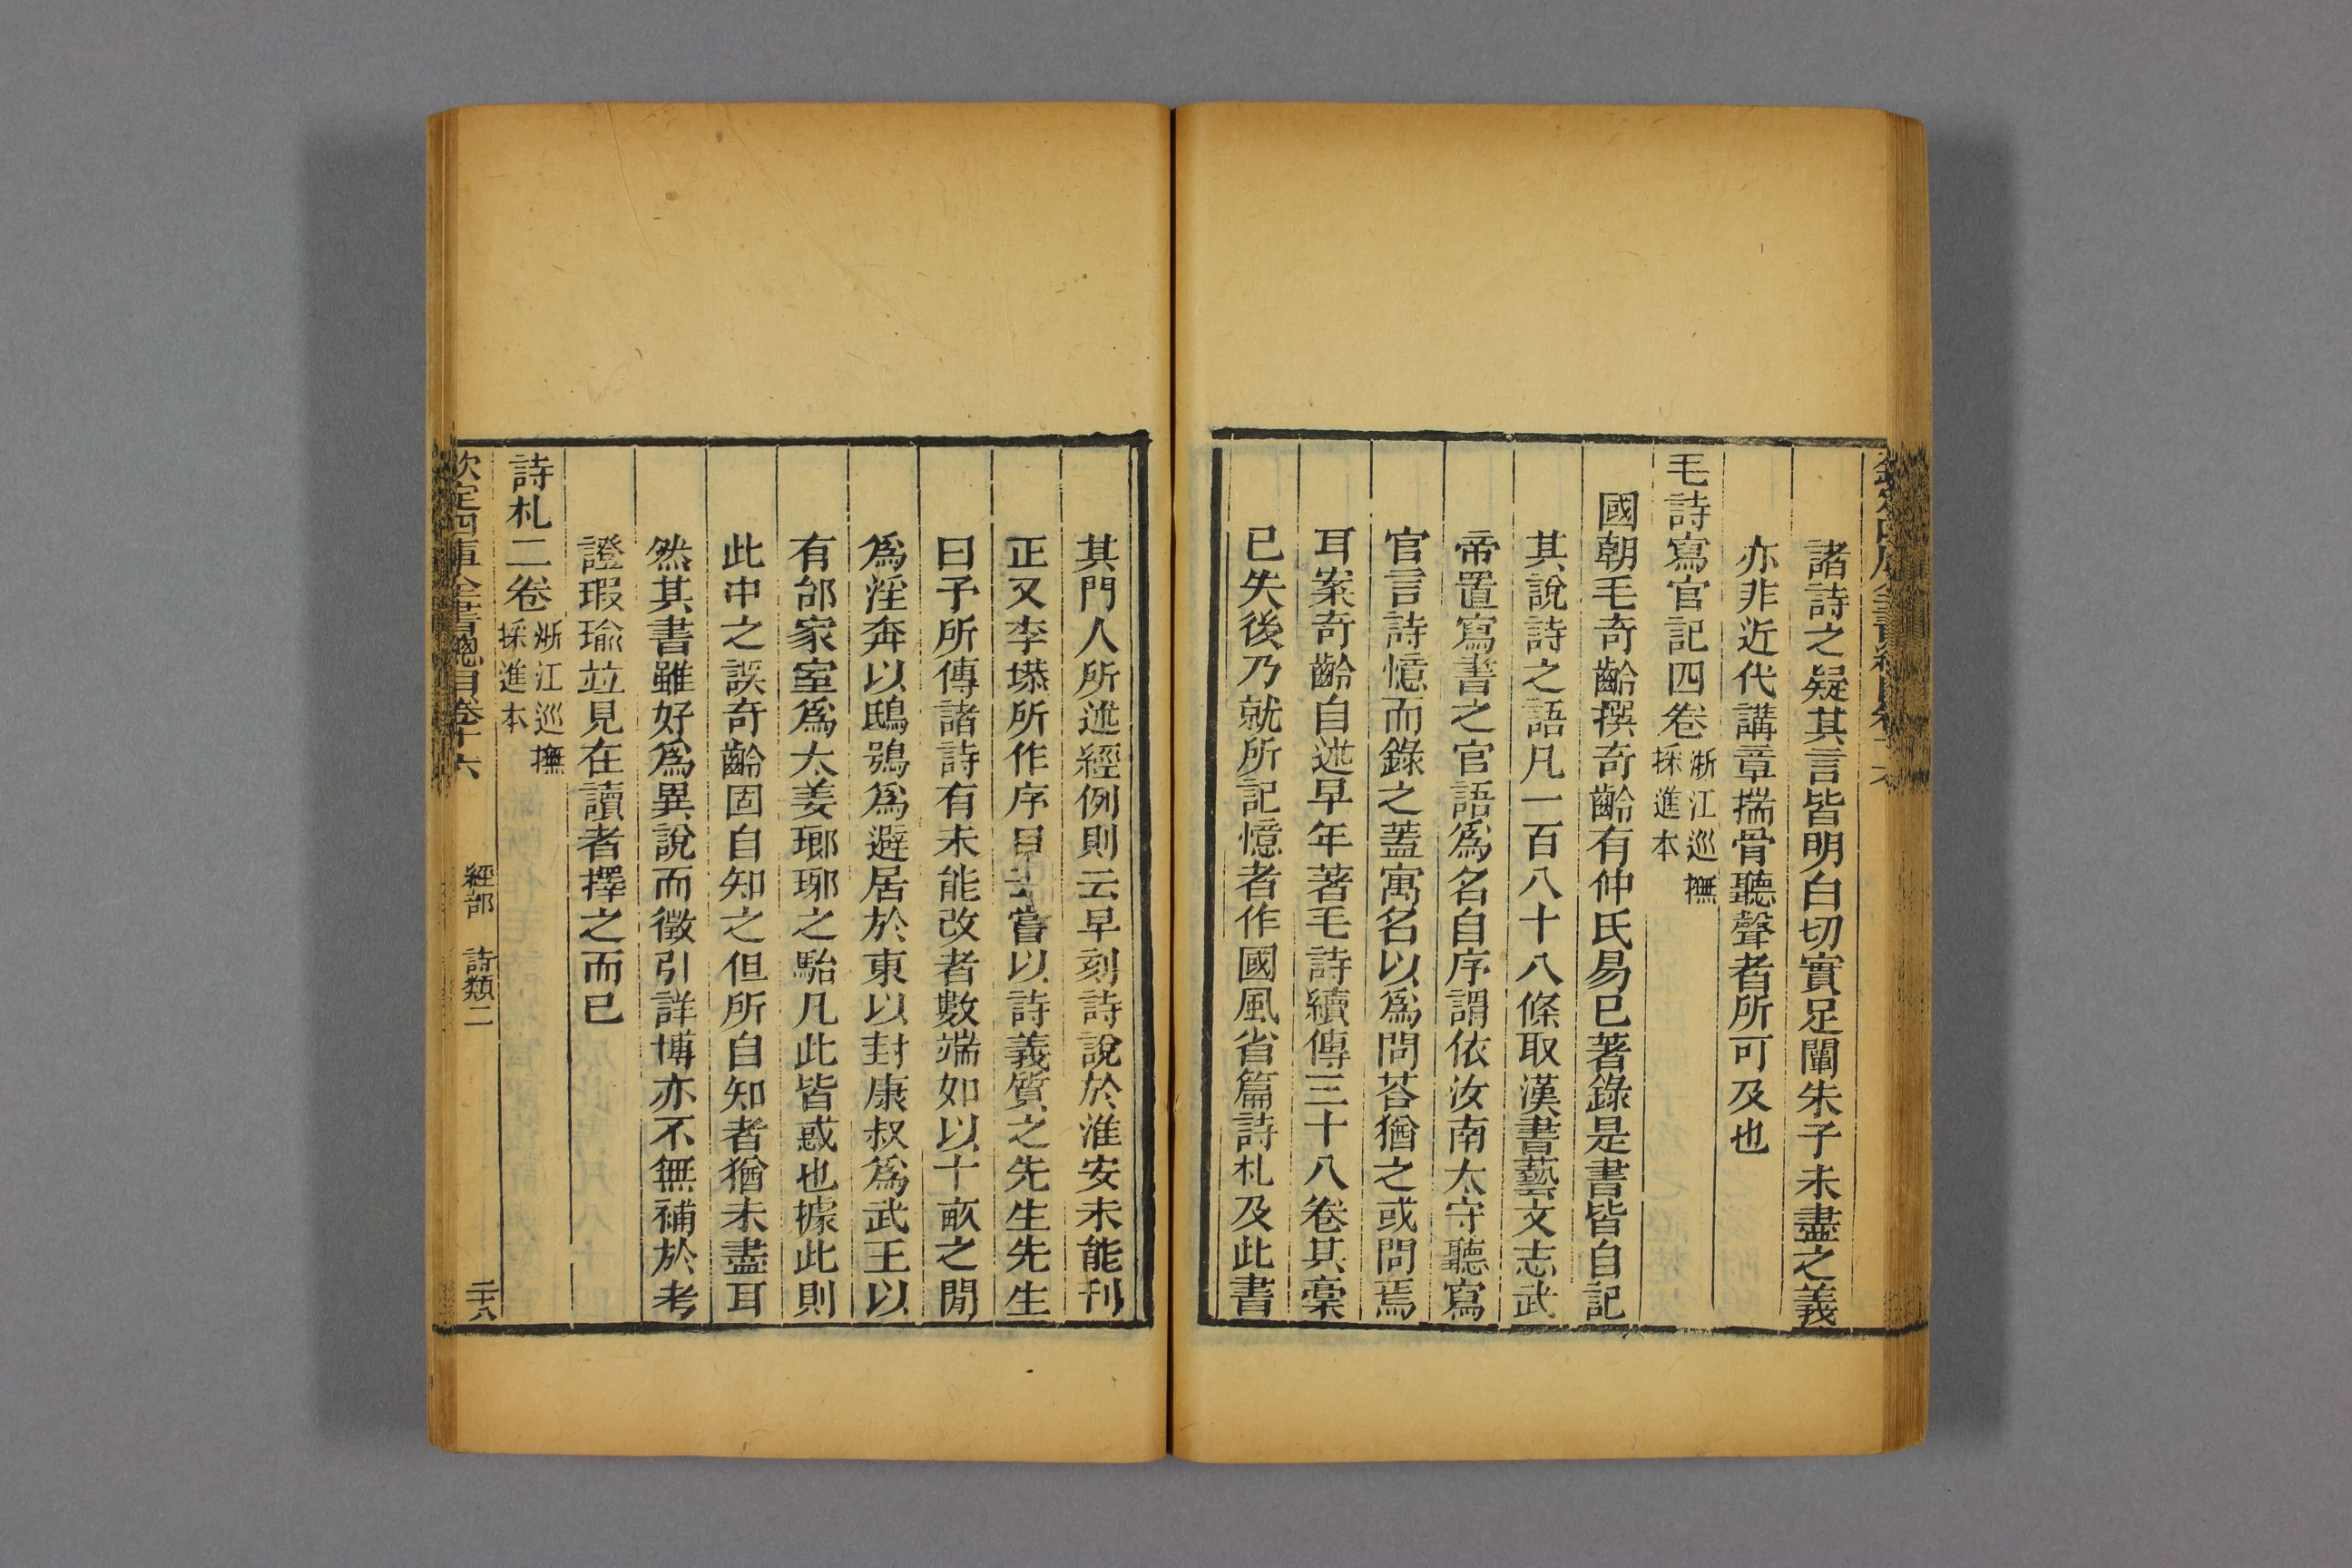 諸詩之疑其言皆明白切實足闡朱子未盡之義
亦非近代講章揣骨聽聲者所可及也
毛詩寫官記四卷浙江巡撫採進本
國朝毛奇齡撰奇齡有仲氏易已著錄是書皆自記
其說詩之語凡一百八十八條取漢書藝文志武
帝置寫書之官語爲名自序謂依汝南太守聽寫
官言詩憶而錄之蓋寓名以爲問荅猶之或問焉
耳案奇齡自述早年著毛詩續傳三十八卷其稾
已失後乃就所記憶者作國風省篇詩札及此書
其門人所述經例則云早刻詩說於淮安未能刊
正又李塨所作序目嘗以詩義質之先生先生
曰予所傳諸詩有未能改者數端如以十畝之閒
爲淫奔以鴟鴞爲避居於東以封康叔爲武王以
有邰家室爲太姜瑯琊之駘凡此皆惑也據此則
此中之誤奇齡固自知之但所自知者猶未盡耳
然其書雖好爲異說而徵引詳博亦不無補於考
證瑕瑜並見在讀者擇之而已
詩札二卷浙江巡撫採進本
欽定四庫全書總目卷十六 經部 詩類二 二十八